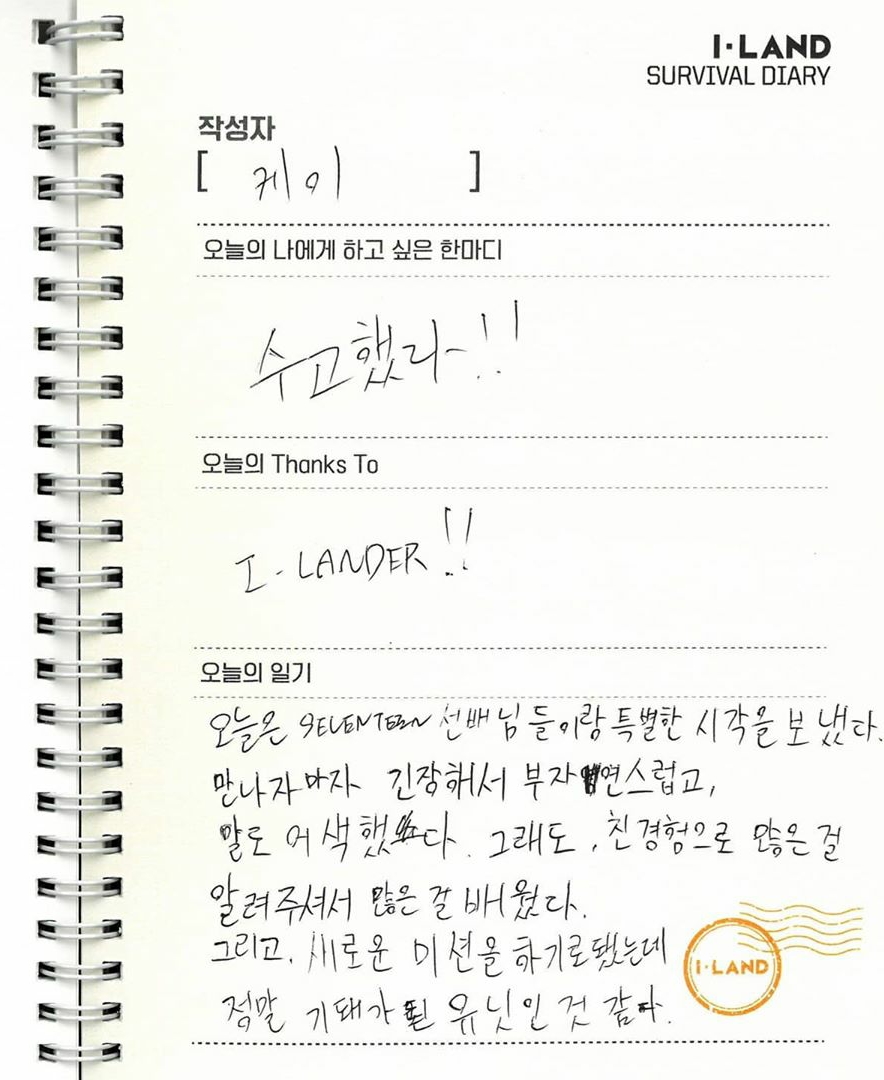 I·LAND
SURVIVAL DIARY
작성자
[ 케이 ]
오늘의 나에게 하고 싶은 한마디
수고했다-!!
오늘의 Thanks To
I-LANDER!!
오늘의 일기
오늘은 SEVENTEEN 선배님들이랑 특별한 시각을 보냈다.
만나자마자 긴장해서 부자연스럽고,
말도 어색했다. 그래도, 친경험으로 많은 걸
알려주셔서 많은 걸 배웠다.
그리고, 새로운 미션을 하기로됐는데
정말 기대가 된 유닛인 것 같다.
I·LAND